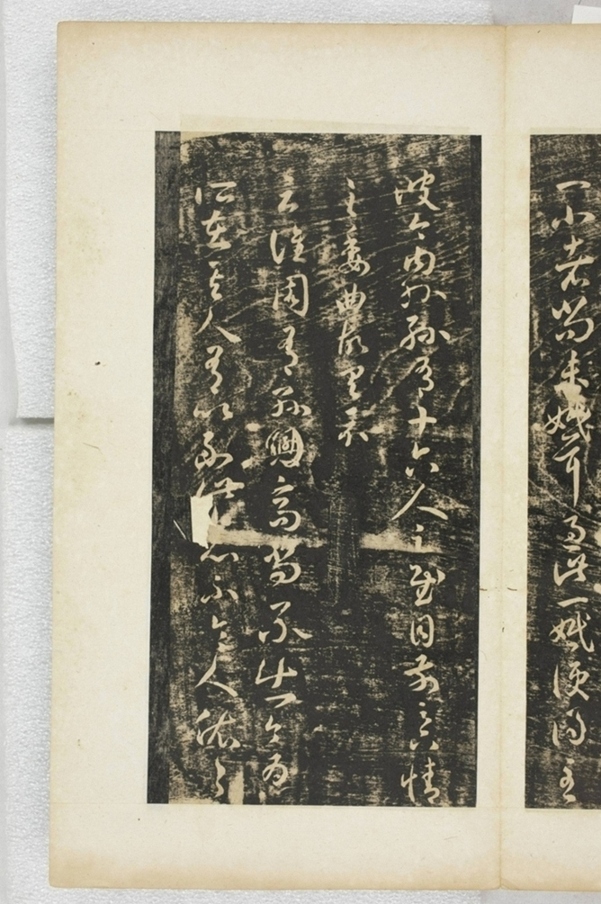 一小者尚未婚耳過此一婚便得至
彼今內外孫有十六人足慰目前足下情
至委曲故具示
云譙周有孫高尚不出今為
所在其人有以副此志不令人依依足